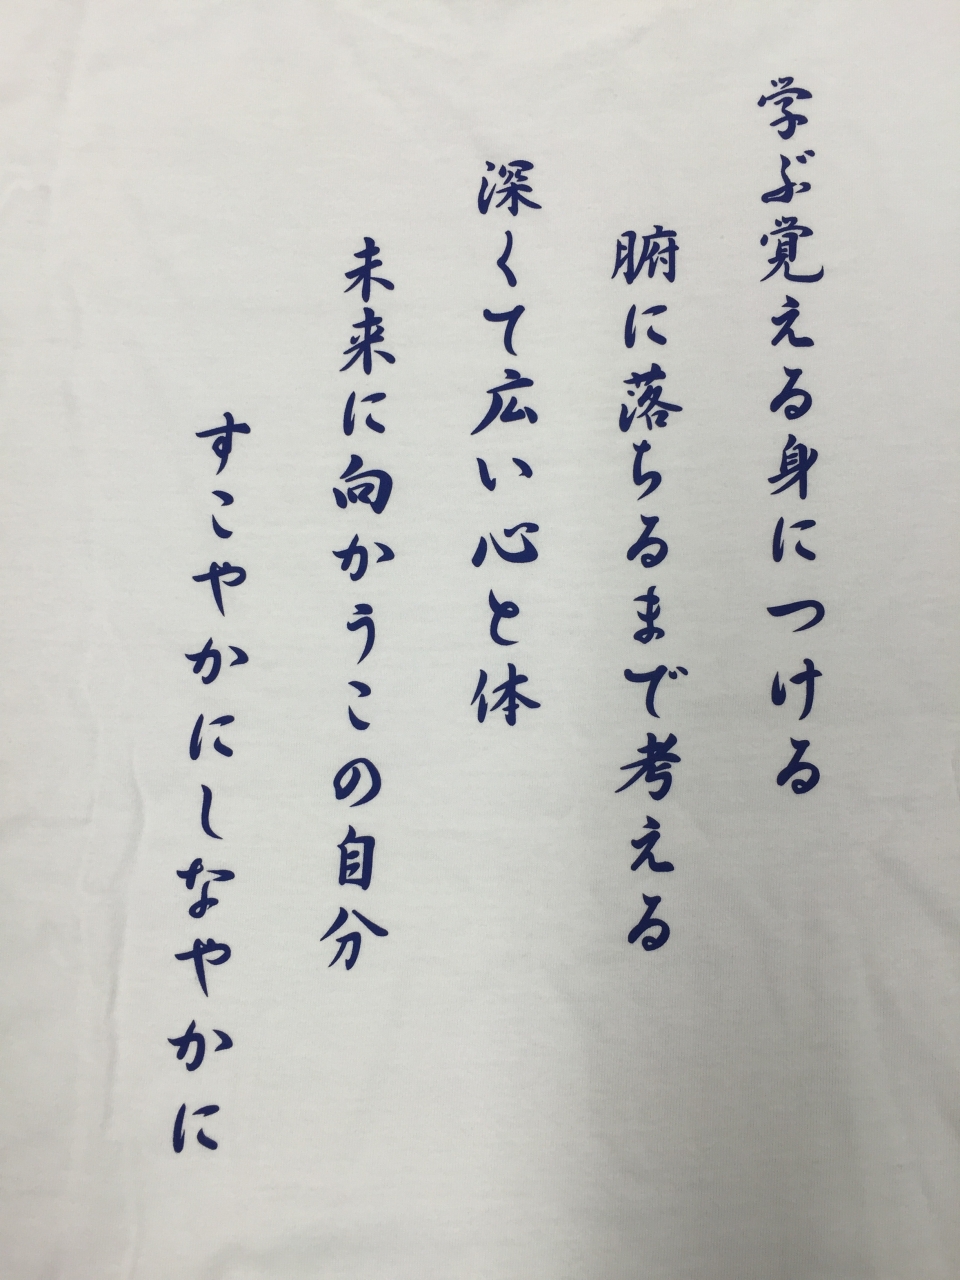 学ぶ覚える身につける
腑に落ちるまで考える
深くて広い心と体
未来に向かうこの自分
すこやかにしなやかに